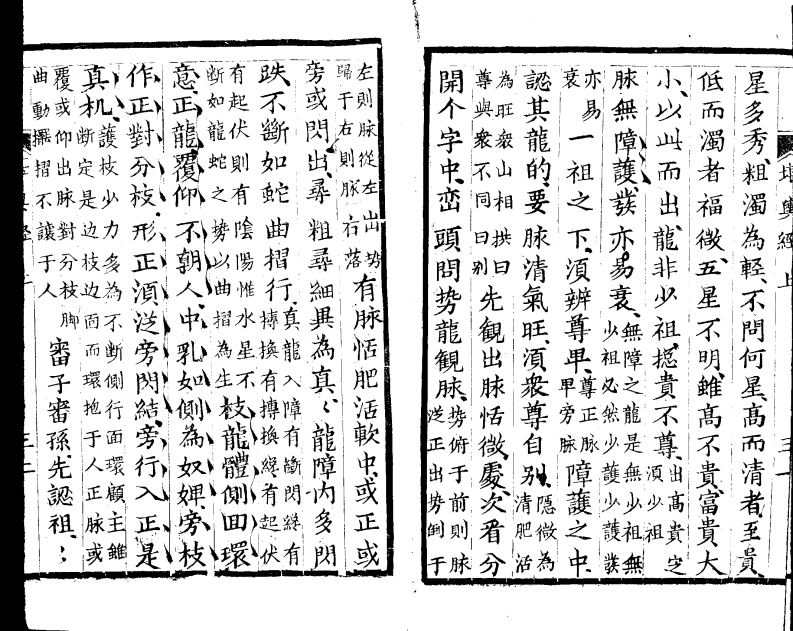 星多秀粗濁為輕不問何星高而清者至貴
低而濁者福微五星不明雖高不貴富貴大
小以此而出龍非少祖捴貴不尊出高貴定須少祖
脉無障護發亦易衰無障之龍是無少祖無少祖必然少護少護發
亦易衰一祖之下須辨尊卑尊正脉卑旁脉障護之中
認其龍的要脉清氣旺須衆尊自别隠微為清肥活
為旺衆山相拱曰尊與衆不同曰别先観出脉恬微處次看分
開个字中峦頭問势龍観脉势俯于前則脉从正出势倒于
堪輿經上
左則脉從左出势歸于右則脉右落有脉恬肥活軟中或正或
旁或閃出尋粗尋細異為真〻龍障内多閃
跌不斷如蛇曲摺行真龍入障有斷閃縂有摶換有摶換縂有起伏
有起伏則有陰陽惟水星不断如龍蛇之势以曲摺為生枝龍體側面環
意正龍覆仰不朝人中乳如側為奴婢旁枝
作正對分枝形正須从旁閃結旁行入正是
真机護枝少力多為不斷側行面環顧主雖断定是边枝边面而環抱于人正脉或
覆或仰出脉對分枝脚曲動摺不讓于人審子審孫先認祖〻